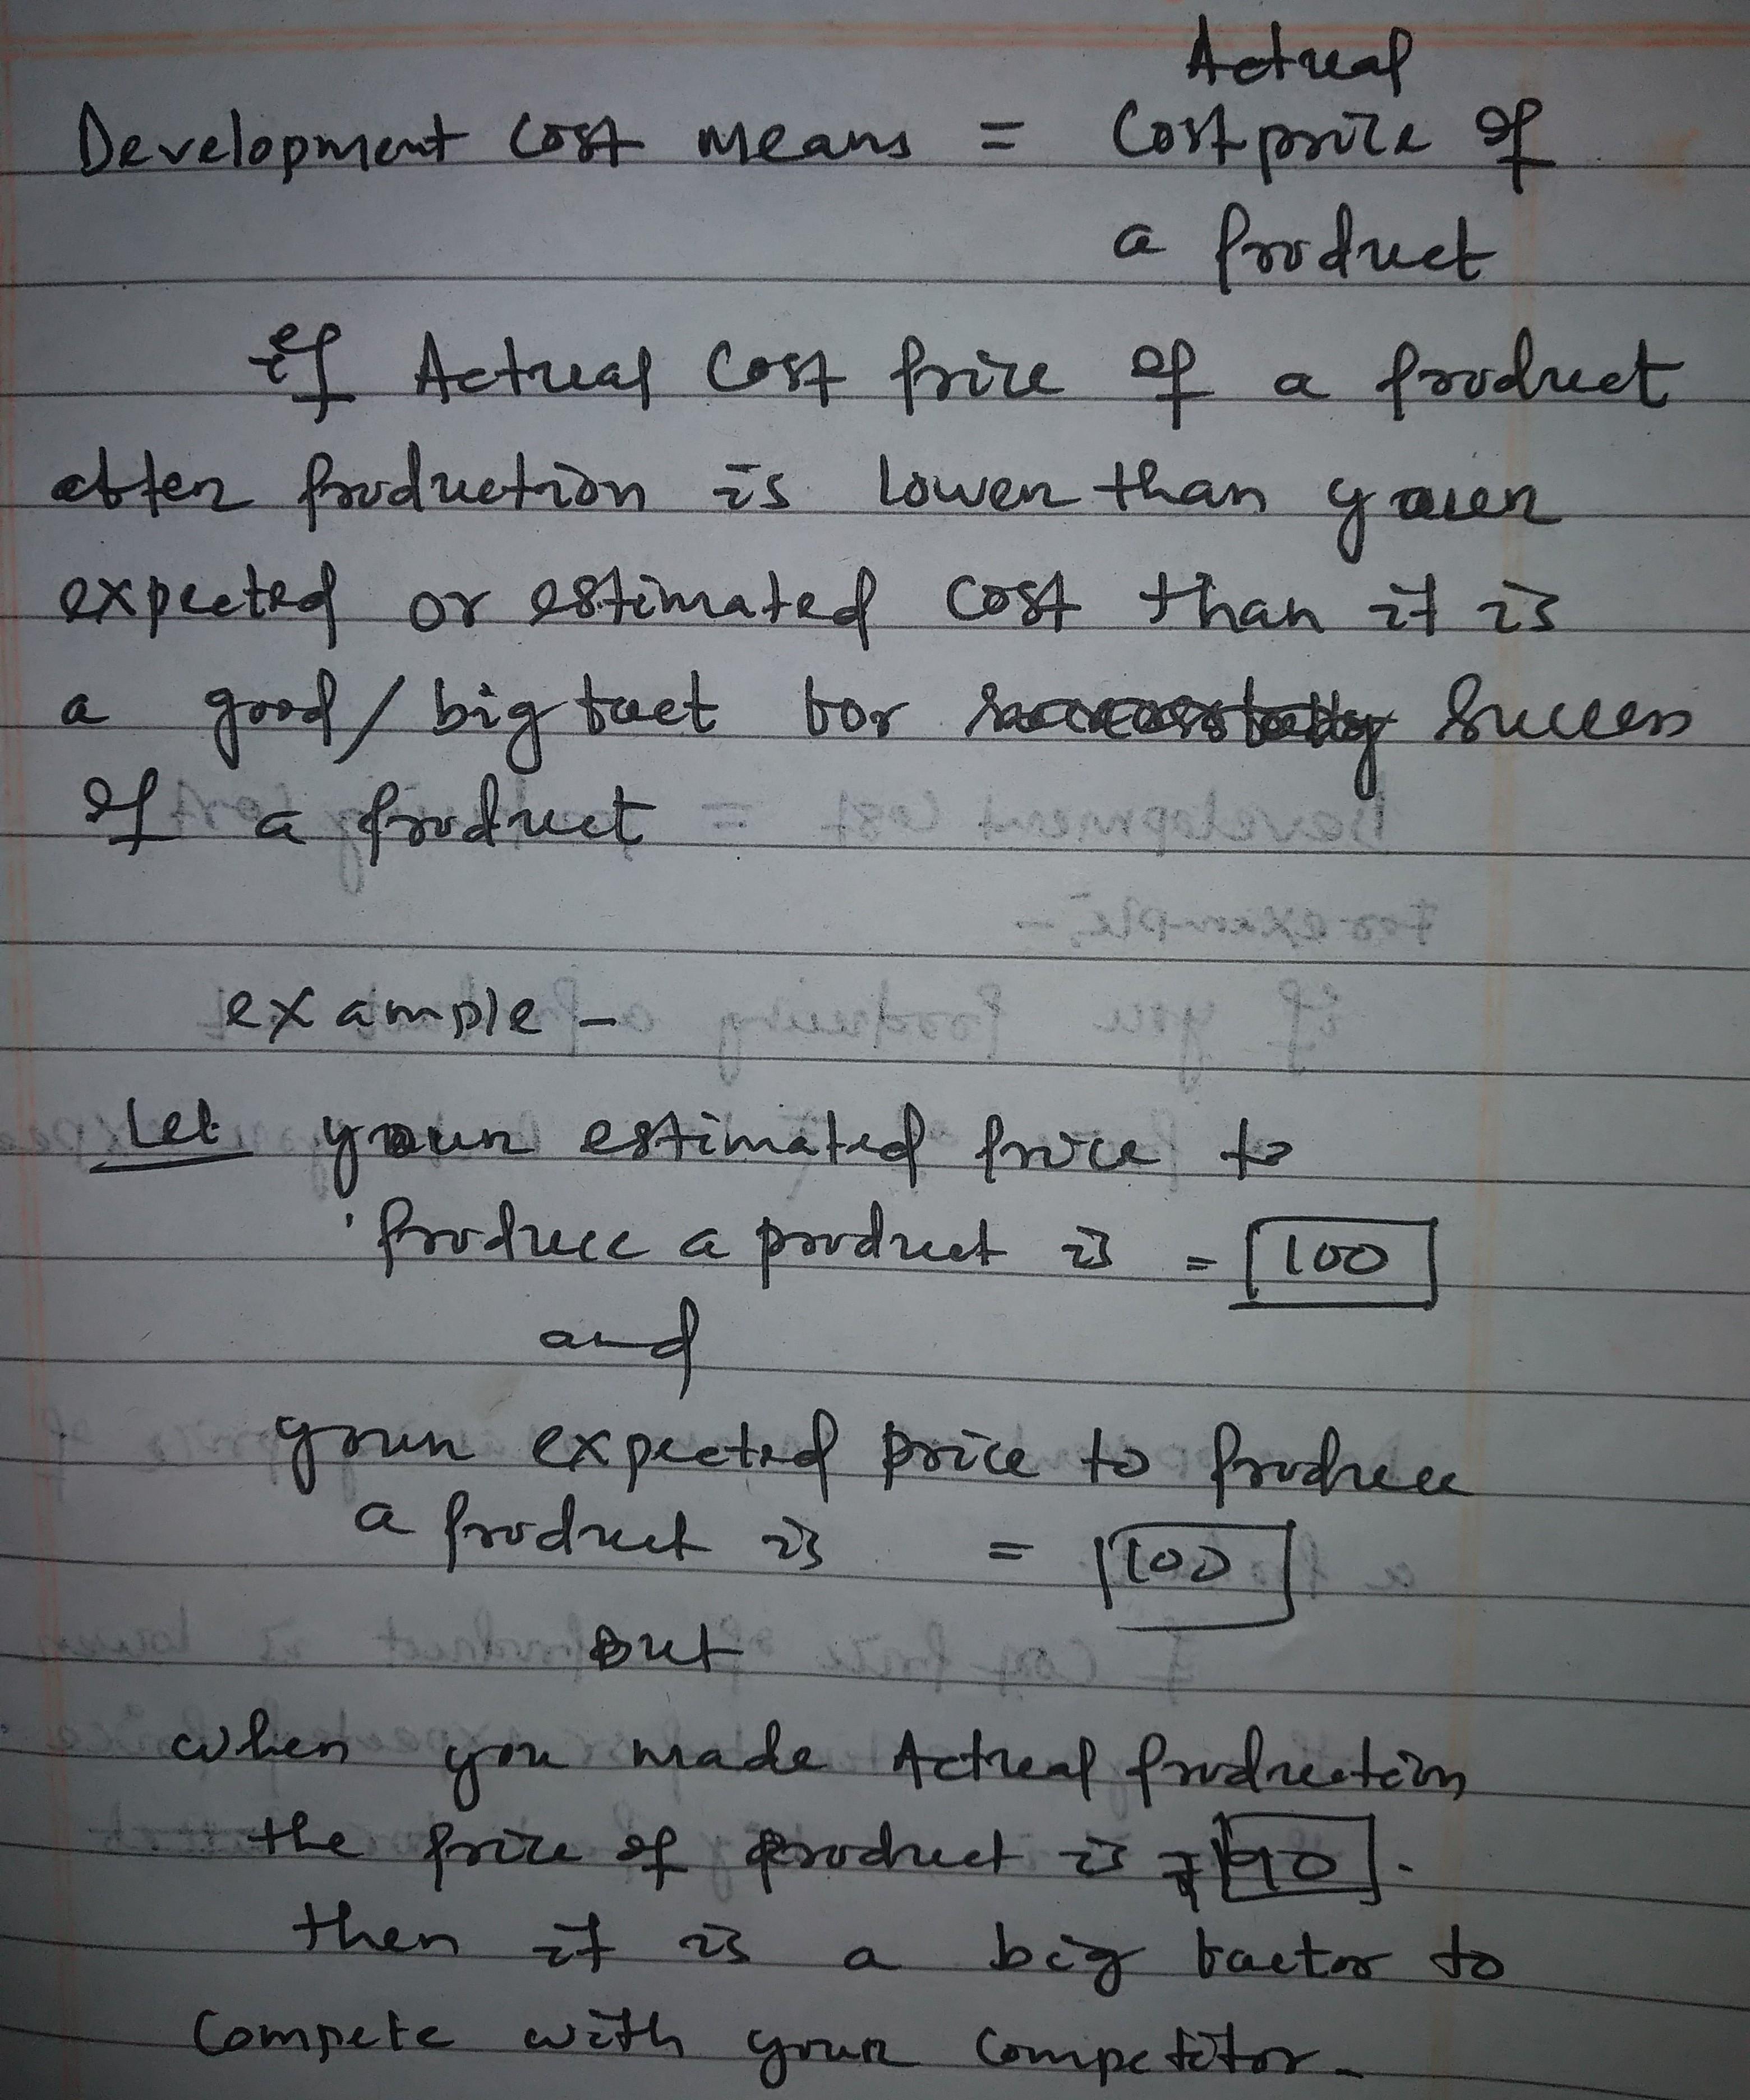 Actual
Development cost means = Cost price of
a product
if Actual Cost price of a product
after production is lower than your
expected or estimated cost than it is
a good/big fact for success
of a product
example -
Let your estimated price to
produce a product is = 100
and
your expected price to produce
a product is = 100
But
when you made Actual production
the price of product is = 90.
then it is a big factor to
compete with your competitor.